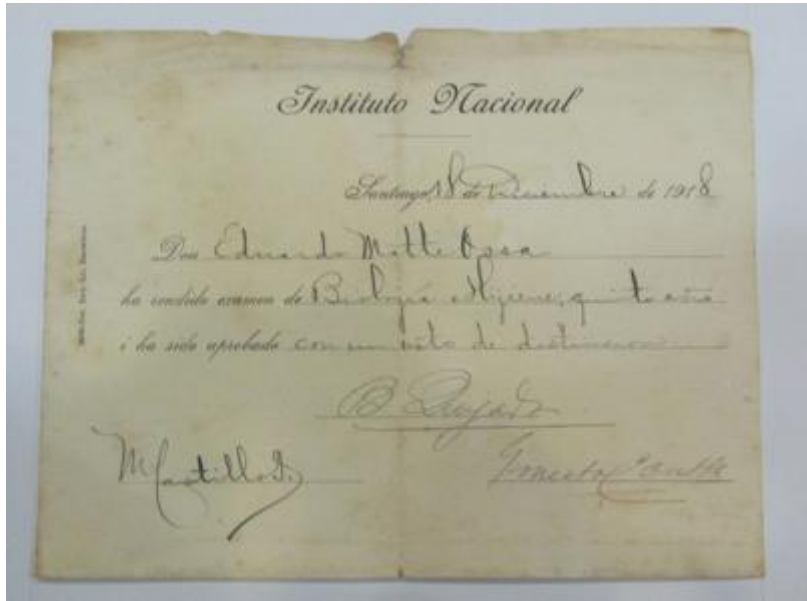 Instituto Nacional
Santiago, 18 de Diciembre de 1918
Don Eduardo Matte Ossa
ha rendido examen de Biología e Higiene, quinto año
i ha sido aprobado con un voto de distincion
B. Quijada
M Castillo
Ernesto